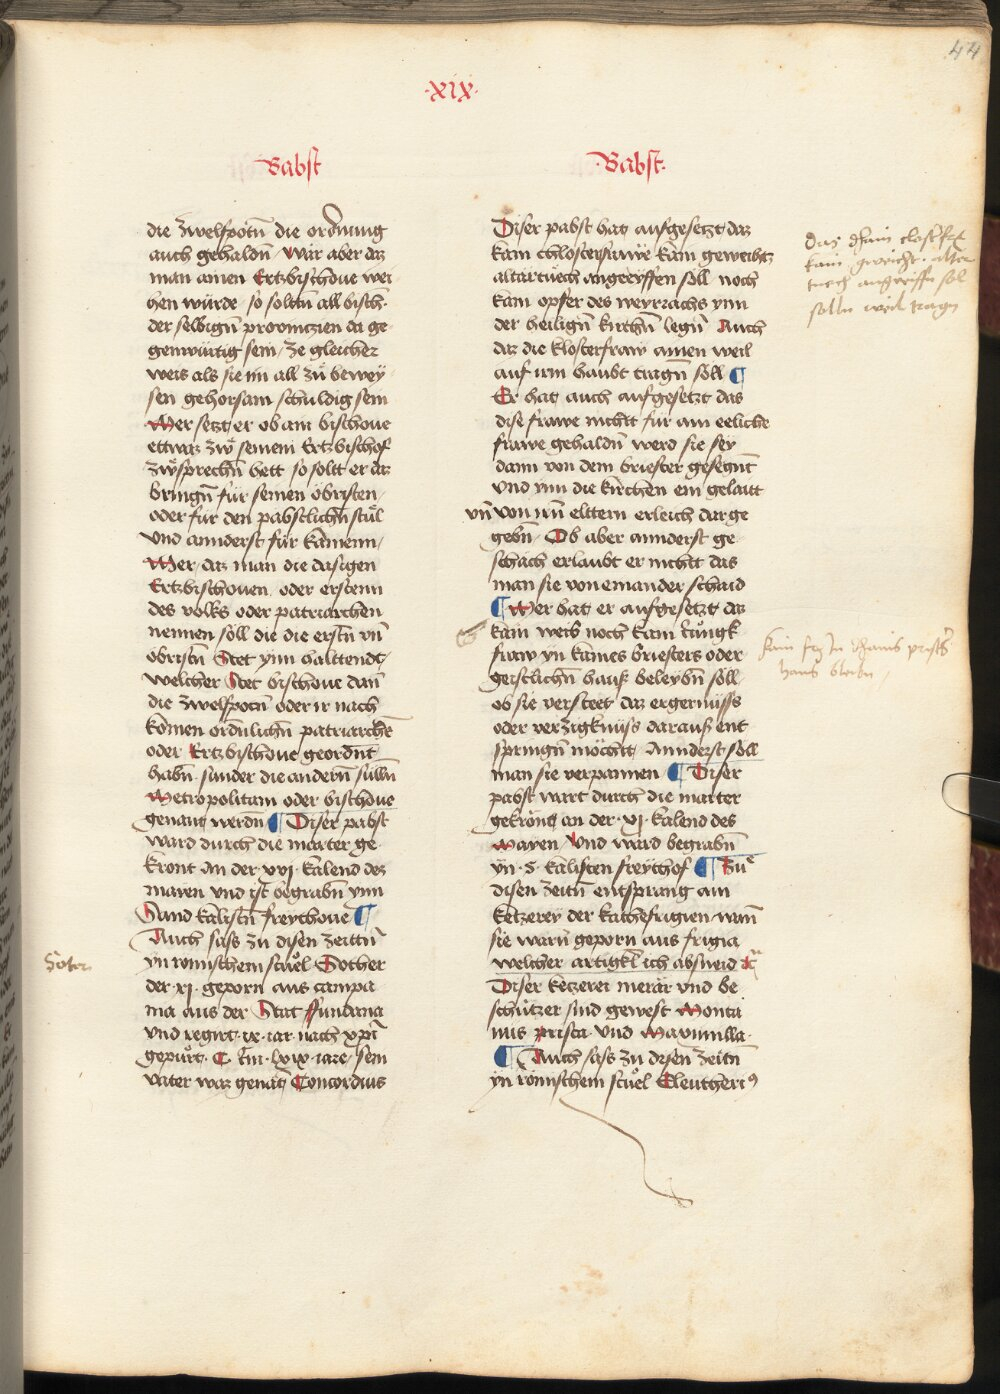 44
·xix·
Babst
die zwelfpotn̄ die ordnung
auch gehaldn̄ / Wär aber daz
man ainen Ertzbischoue wei
hen würde so soltn̄ all bisch
der selbign̄ prouinczien da ge
genwürtig sein / ze gleicher
weis als sie im all zů bewey
sen gehorsam schuldig sein
Mer setzt er ob ain bischoue
ettwaz zw̋ seinem Ertzbischof
zw̋sprechn̄ hett so soltt er daz
bringn̄ für seinen öbristen /
oder für den pabstlichn̄ stůl
Vnd annderst für kainenn /
Mer / daz man die dasigen
Ertzbischouen oder ersten
des volks oder patriarchen
nennen söll die die erstn̄ vn̄
öbristn̄ Stet ynn halttendt /
welcher Stet bischoue dan̄
die zwelfpotn̄ oder ir nach
komen ordnlichn̄ patriarchē
oder Ertzbischoue geordn̄t
habn̄ · sunder die andern̄ sulln̄
Metropolitani oder bischoue
genant werdn̄ ¶ Diser pabst
ward durch die marter ge
kront An der xvj · kalend des
mayen vnd ist begrabn̄ ynn
Sand kalistn̄ freythoue ¶
Auch sass zu disen zeittn̄
yn römischem stuel Sother
der · xj · geporn aus campa
nia aus der Stat ffundana
vnd regirt · ix · iar nach xp̄i
gepůrt · C · lxix · iare / sein
vater waz genāt Concordius
Soter
Babst·
Diser pabst hat aufgesetzt daz
kain chlosterfrawe kain geweichtz
altartuech angreyffen söll noch
kain opfer des weyrrachs ynn
der heilign̄ kirchn̄ legn̄ Auch
daz die klosterfraw ainen weil
auf irm haubt tragn̄ söll ¶
Er hat auch aufgesetzt das
dise frawe nichtt für ain eeliche
frawe gehaldn̄ werd sie sey
dann von dem briester gesegnt
vnd ynn die kirchen ein gelaitt
vn̄ von irn̄ elttern erleich dar ge
gebn̄ / Ob aber annderst ge
schäch erlaubt er nichtt das
man sie voneinander schaid
¶ Mer hat er aufgesetzt daz
kain weib noch kain iungk
fraw yn kaines briesters oder
geistlichn̄ hauß beleybn̄ söll
ob sie versteet daz ergernüss
oder verzigknüss darauß ent
springn̄ möchtt Annderst söll
man sie verpannen ¶ Diser
pabst wart durch die marter
gekrönt an der · xj · kalend des
mayen / Vnd ward begrabn̄
yn · S · kalisten freythof ¶ Zu
disen zeitn̄ entsprang ain
ketzerey der kathefrigien wan̄
sie warn̄ geporn aus frigia
welcher artigkl ich absneid
Diser ketzerei merär vnd be
schützer sind gewest Monta
nus prisca vnd Maximilla ·
¶ Auch sass zu disen zeitn̄
yn römischem stuel Eleutheri9
Das chain closterfr
kain geweicht alter
tuech angreiffn sol
solln weil tragn
kain fr In chains prists
haus bleibn